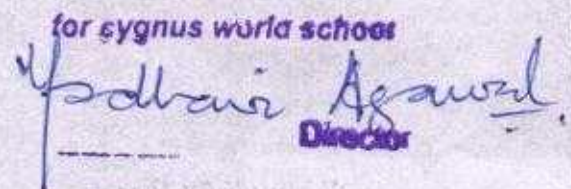 for cygnus world school
Yadhavir Agarwal
Director